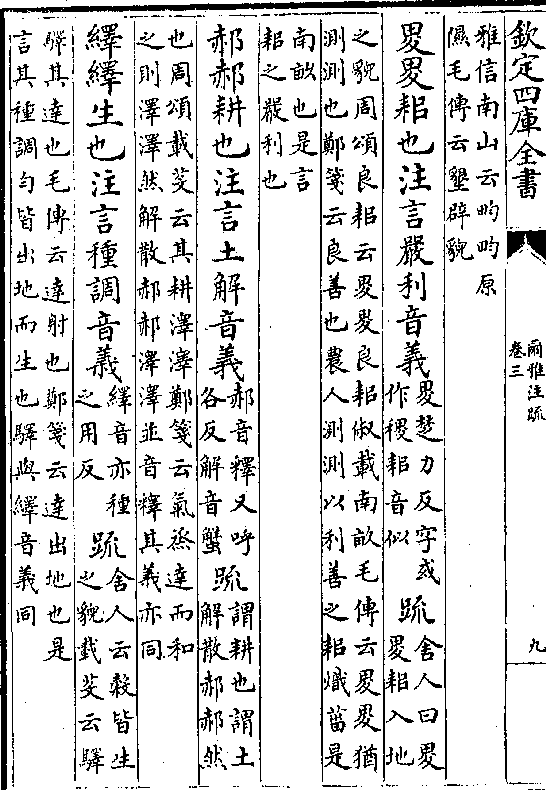 欽定四庫全書
爾雅注疏
卷三
九
雅信南山云畇畇原
隰毛傳云墾辟貌
畟畟耜也注言嚴利音義
畟楚力反字或
作稷耜音似
疏
舍人曰畟
畟耜入地
之貌周頌良耜云畟畟良耜俶載南畝毛傳云畟畟猶
測測也鄭箋云良善也農人測測以利善之耜熾菑是
南畝也是言
耜之嚴利也
郝郝耕也注言土解音義
郝音釋又呼
各反解音蟹
疏
謂耕也謂土
解散郝郝然
也周頌載芟云其耕澤澤鄭箋云氣烝達而和
之則澤澤然解散郝郝澤澤並音釋其義亦同
繹繹生也注言種調音義
繹音亦種
之用反
疏
舍人云穀皆生
之貌載芟云驛
驛其達也毛傳云達射也鄭箋云達出地也是
言其種調勻皆出地而生也驛與繹音義同